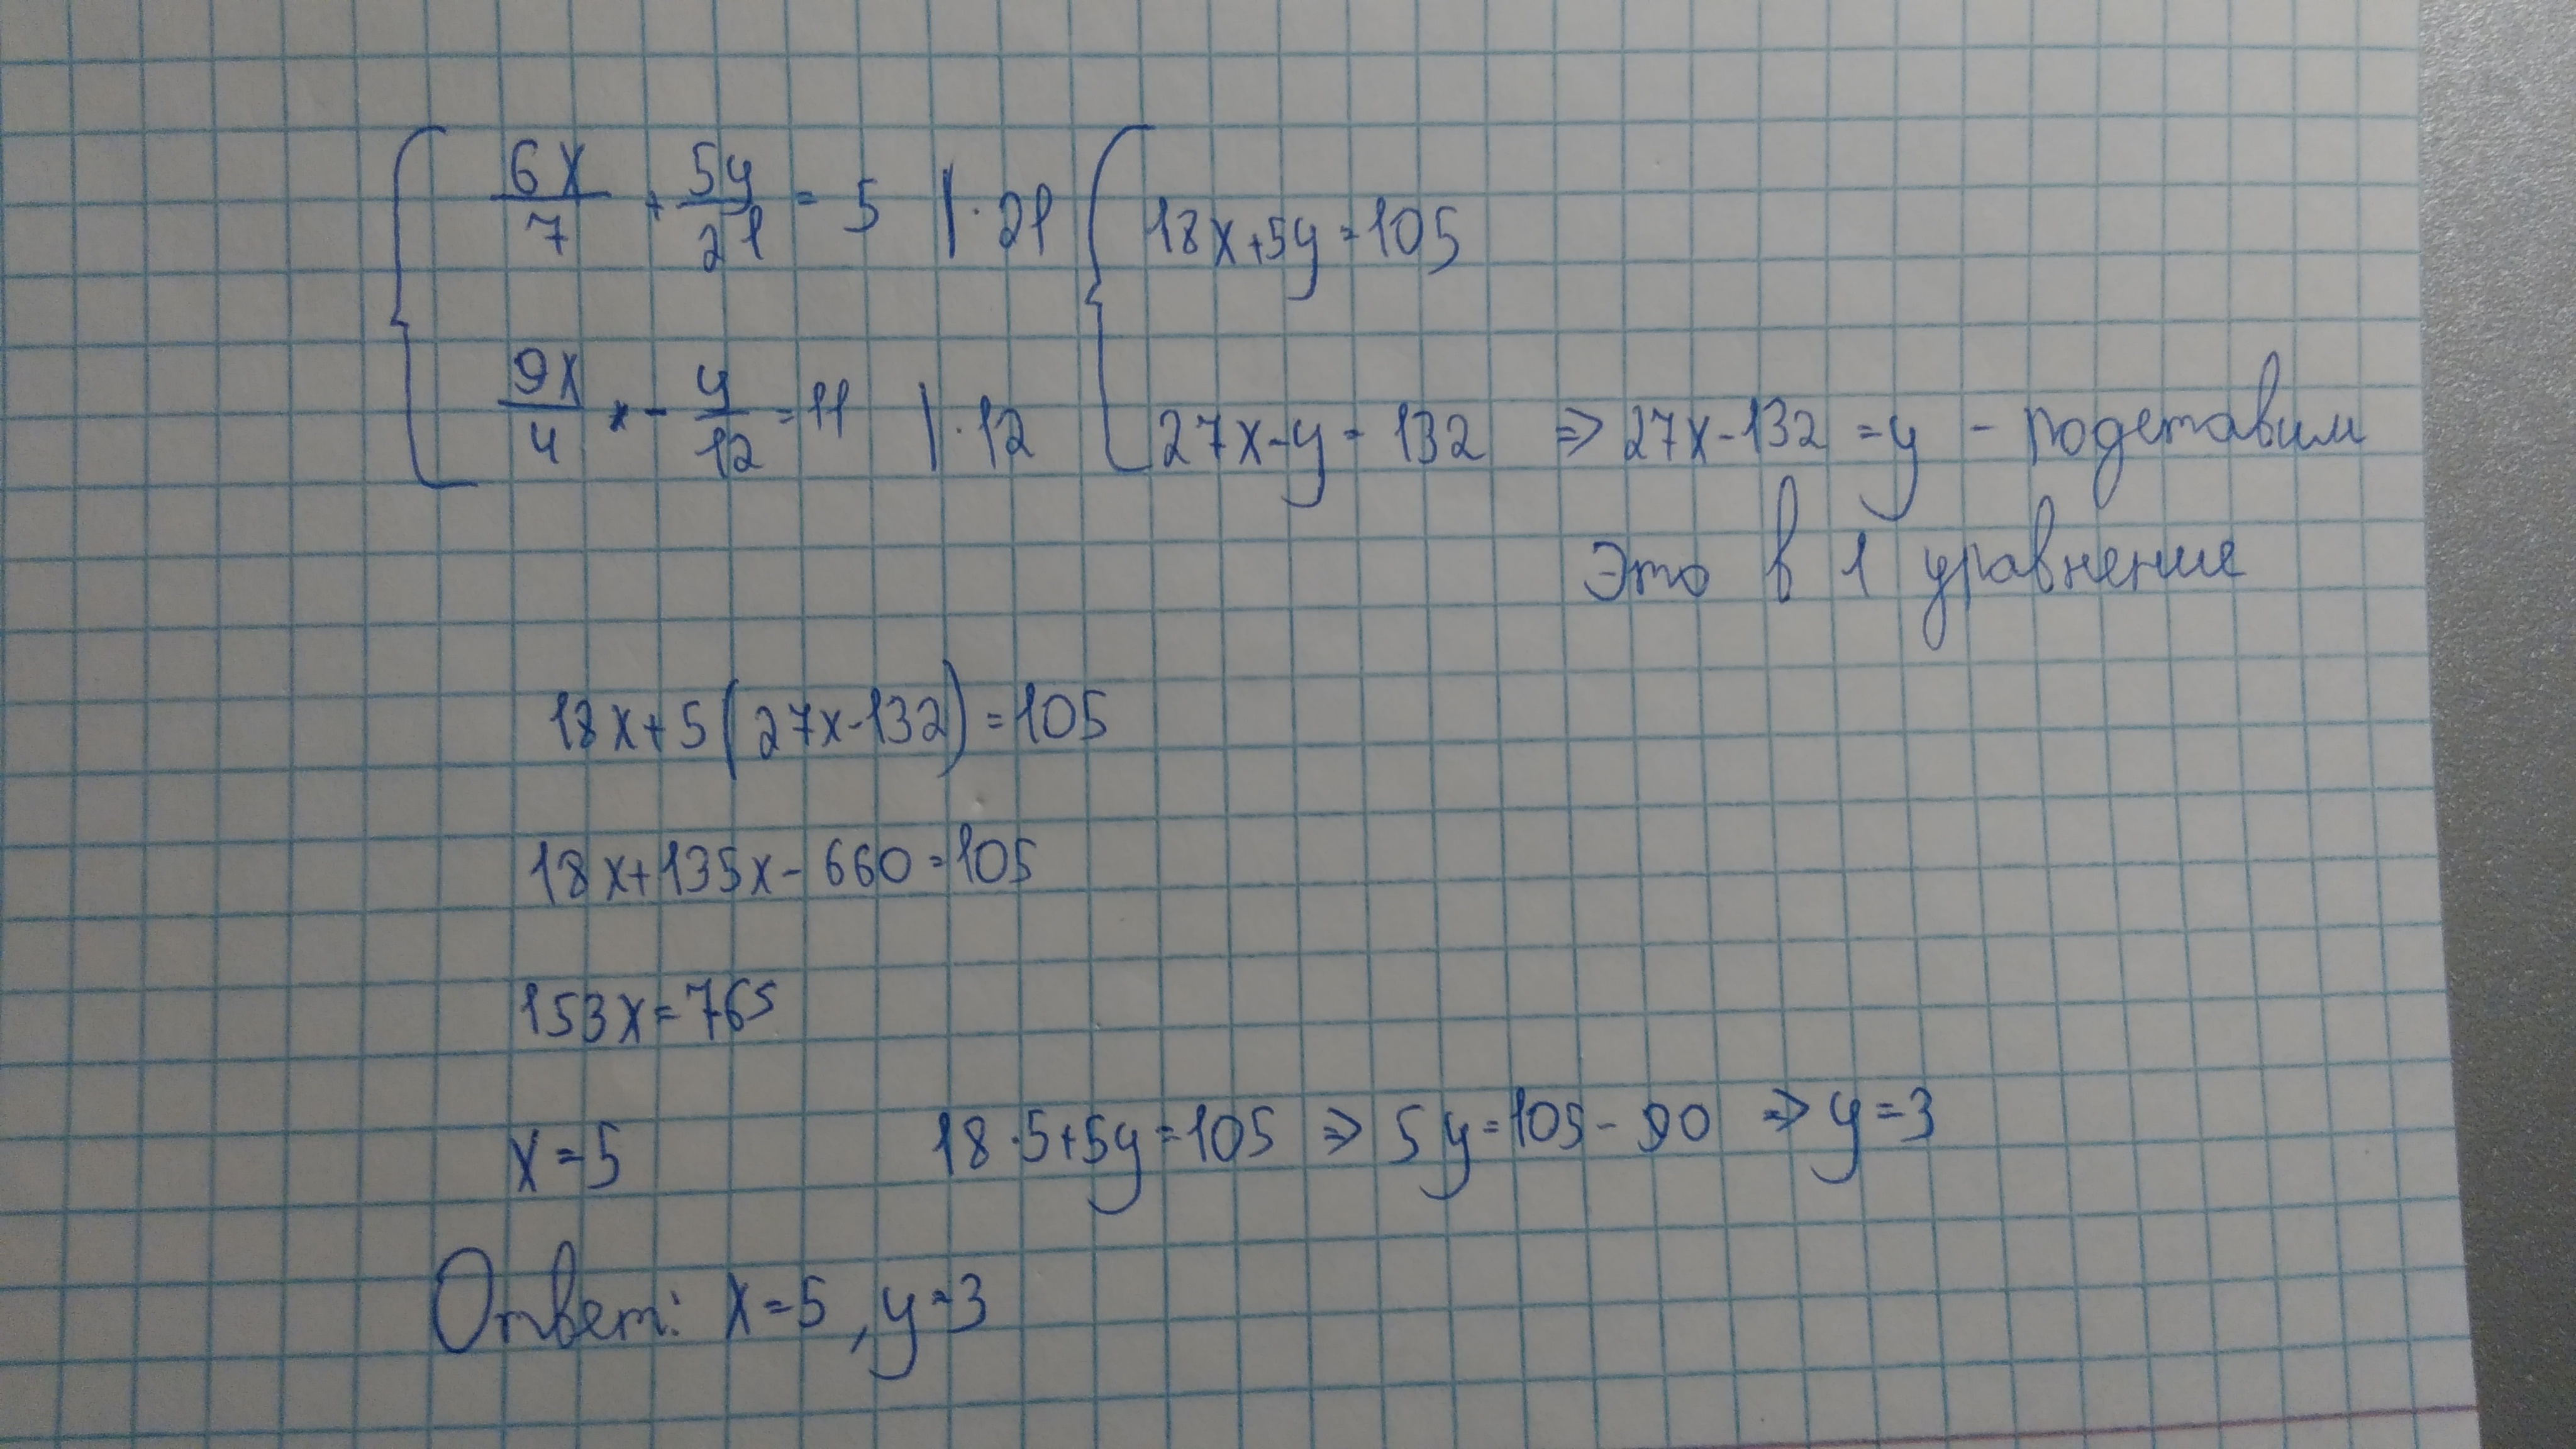 6x/7 + 5y/21 = 5 |·21 { 18x+5y=105
9x/4 - y/12 = 11 |·12 27x-y=132 ⇒ 27x-132=y - подставим
Это в 1 уравнение
18x+5(27x-132)=105
18x+135x-660=105
153x=765
x=5 18·5+5y=105 ⇒ 5y=105-90 ⇒ y=3
Ответ: x=5, y=3